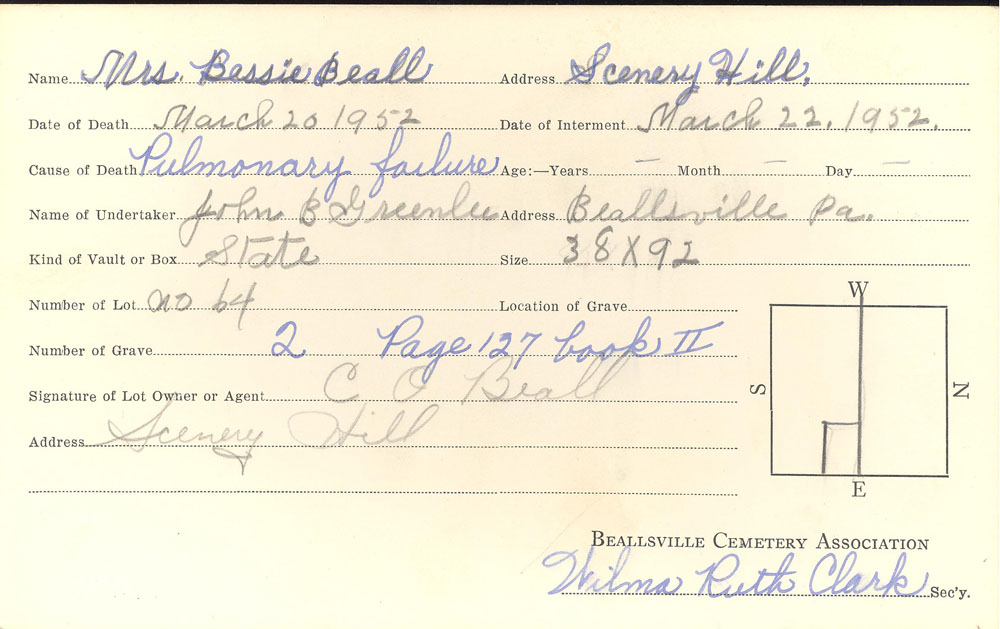 Name Mrs. Bessie Beall Address Scenery Hill.
Date of Death March 20 1952 Date of Interment March 22, 1952.
Cause of Death Pulmonary failure Age:—Years — Month — Day —
Name of Undertaker John B Greenlee Address Beallsville Pa.
Kind of Vault or Box State Size 38X92
Number of Lot no 64 Location of Grave
Number of Grave 2 Page 127 book II
Signature of Lot Owner or Agent C O Beall
Address Scenery Hill
W
S
N
E
BEALLSVILLE CEMETERY ASSOCIATION
Wilma Ruth Clark Sec'y.